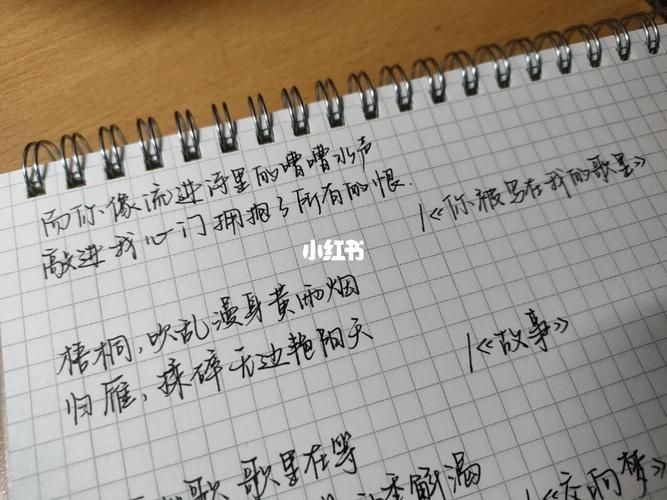 而你像流进诗里的嘈嘈水声
敲进我心门拥抱了所有的恨.
/《你被写在我的歌里》
小红书
梧桐，吹乱漫身黄雨烟
归雁，揉碎无边艳阳天
/《故事》
歌 歌里在等
解渴